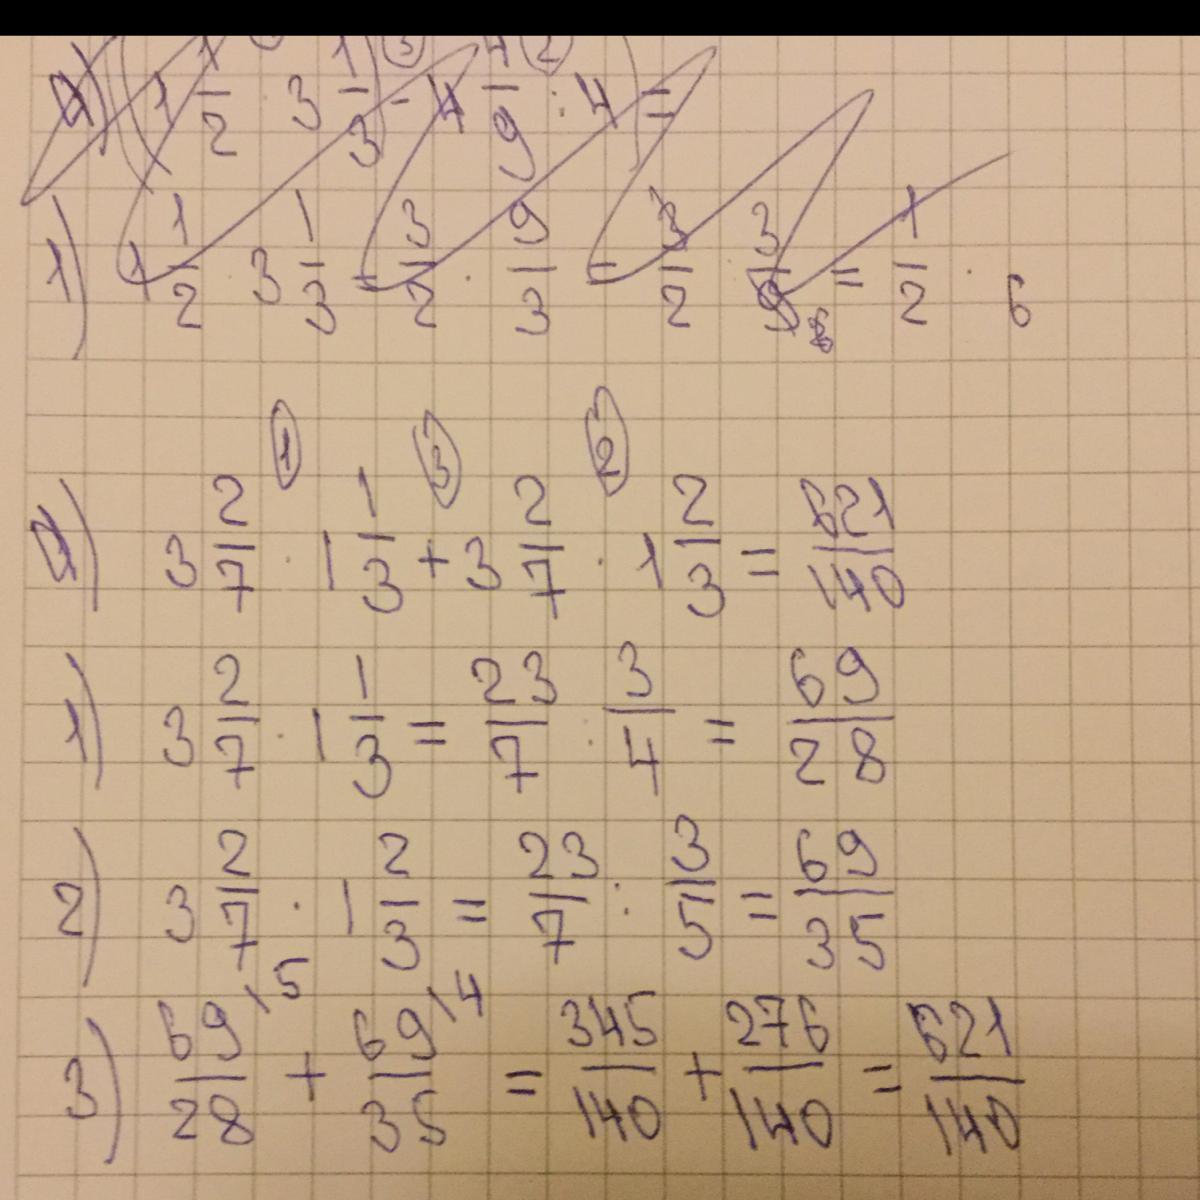 1 1/2 · 3 1/3 - 4 4/9 : 4 =
1) 1 1/2 · 3 1/3 = 3/2 · 9/3 = 3/2 3/9 = 1/2 · 6
1 3 2
3 2/7 · 1 1/3 + 3 2/7 · 1 2/3 = 621/140
1) 3 2/7 · 1 1/3 = 23/7 · 3/4 = 69/28
2) 3 2/7 · 1 2/3 = 23/7 : 3/5 = 69/35
3) 69/28 \5 + 69/35 \4 = 345/140 + 276/140 = 621/140